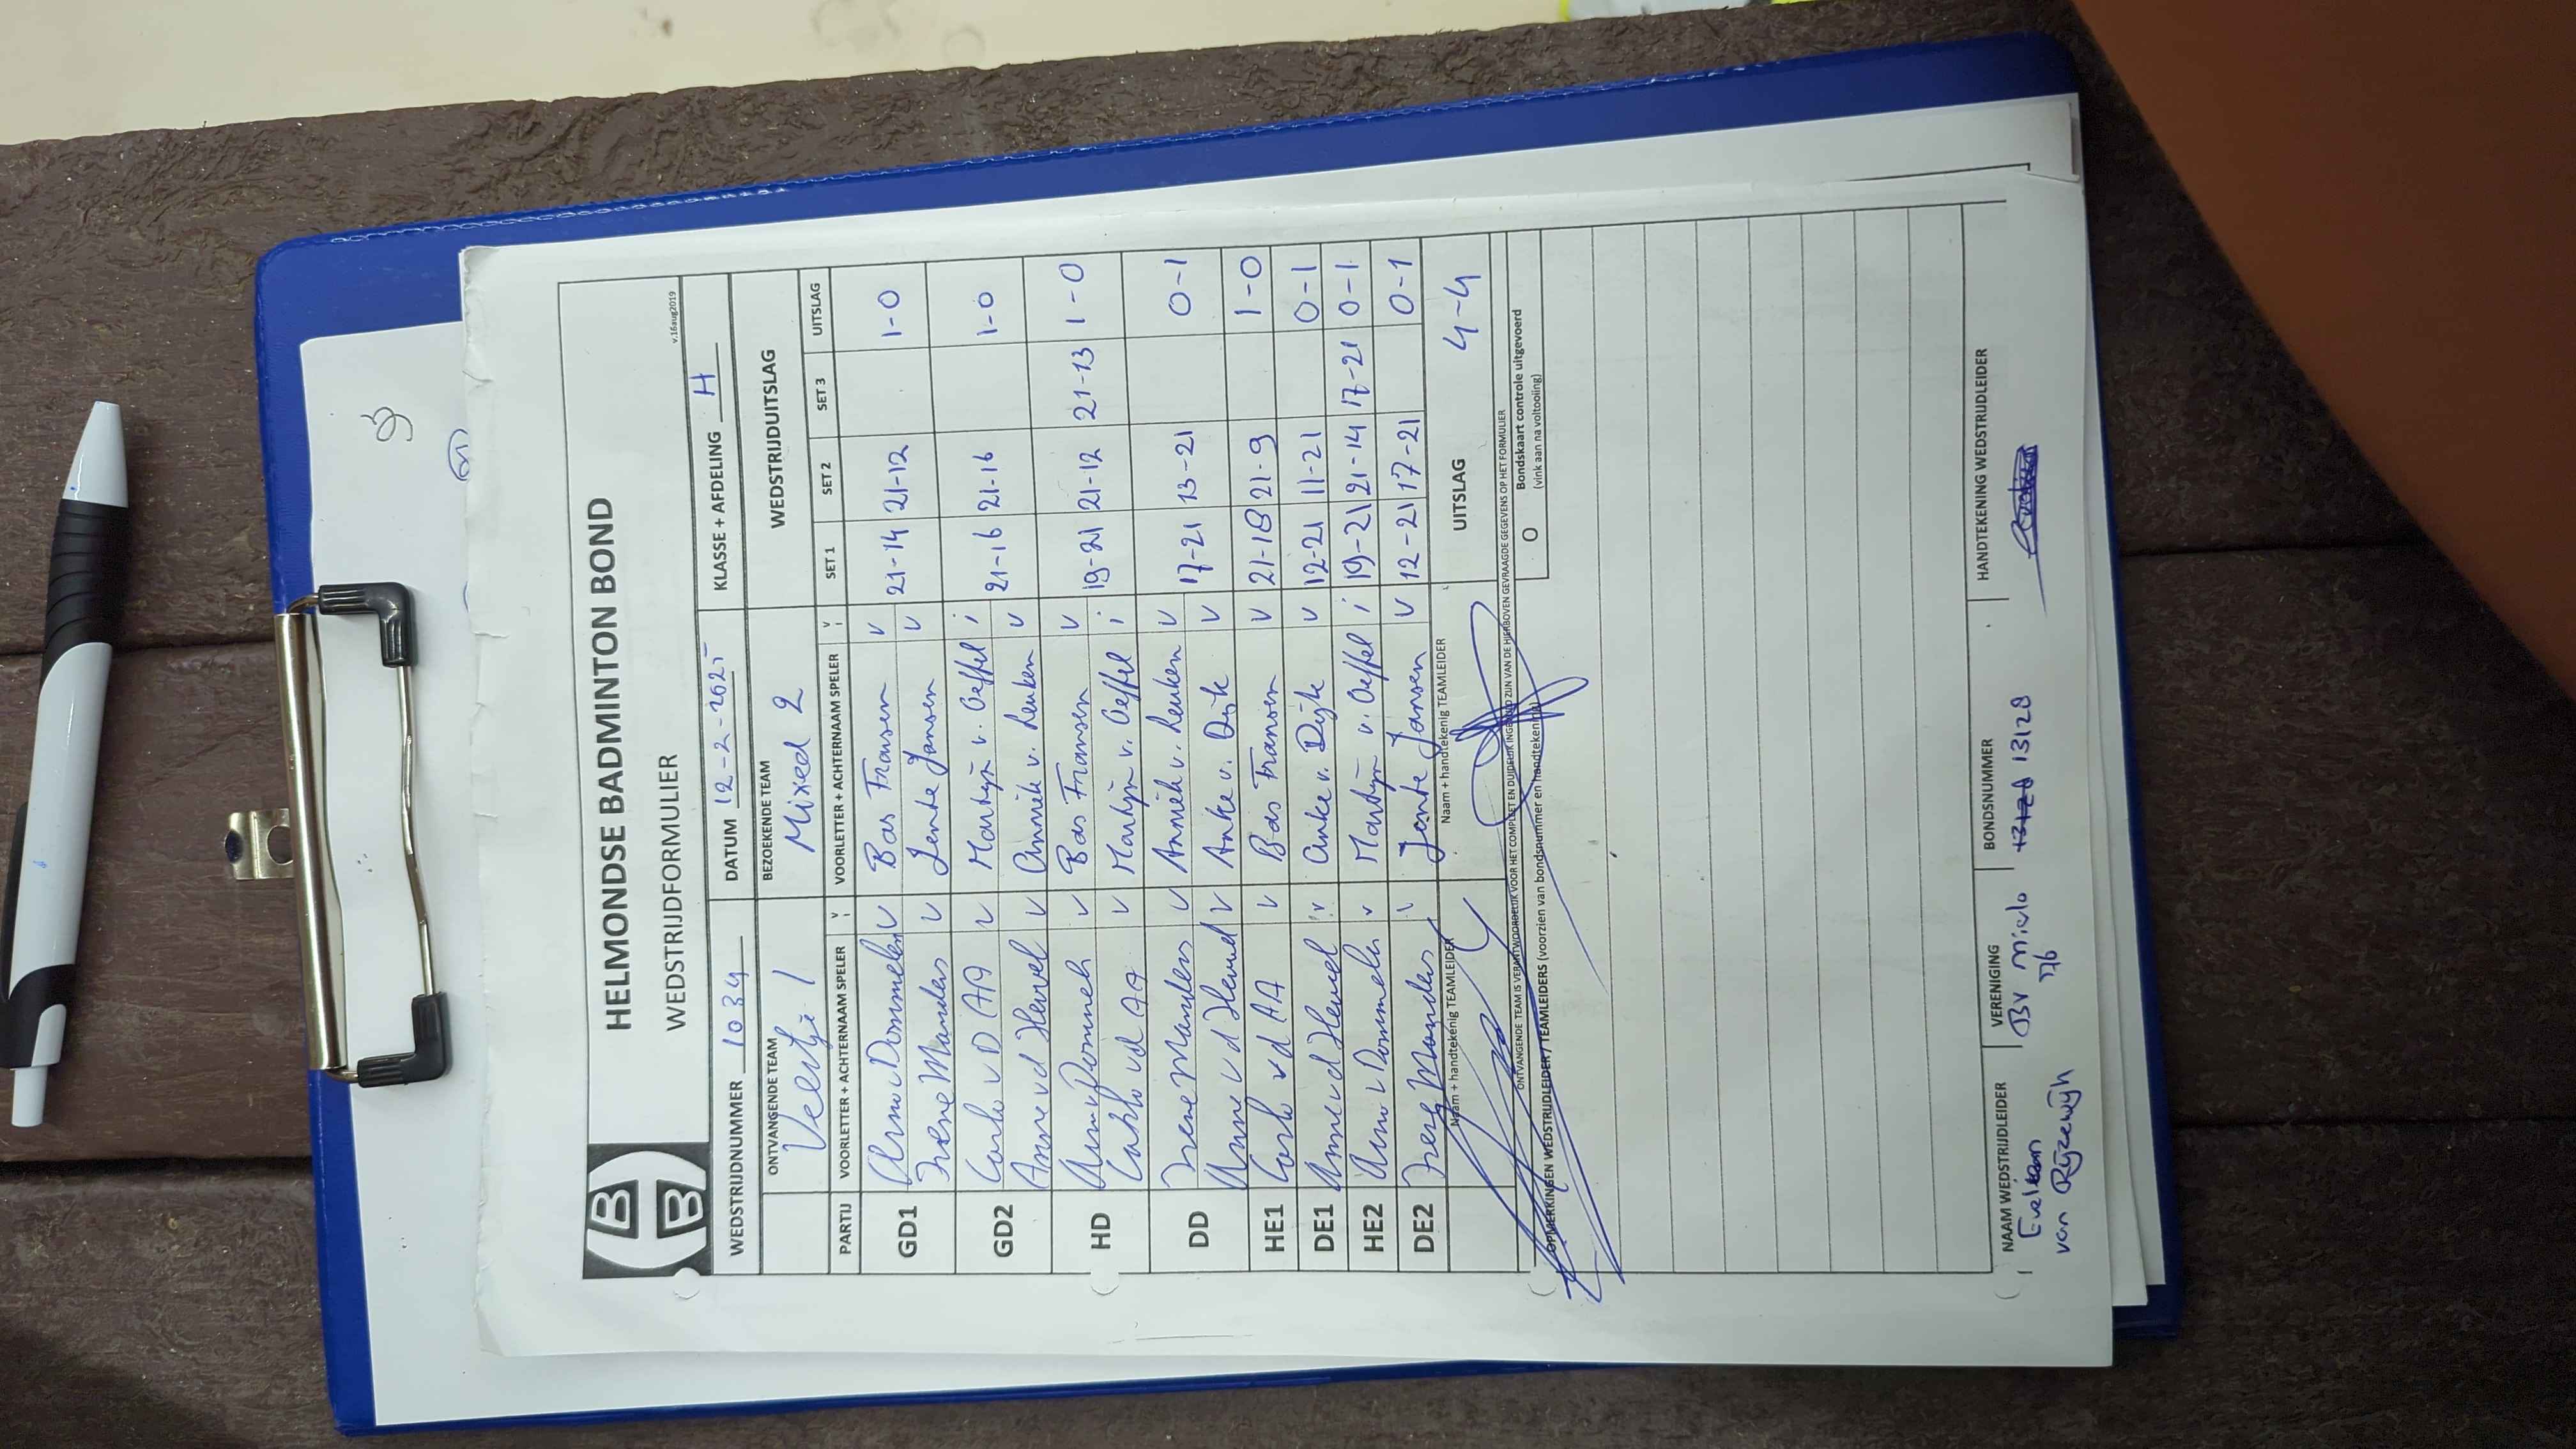 HELMONDSE BADMINTON BOND
WEDSTRIJDFORMULIER
v.16aug2019
WEDSTRIJDNUMMER 1034 DATUM 12-2-2025 KLASSE + AFDELING H
ONTVANGENDE TEAM BEZOEKENDE TEAM WEDSTRIJDUITSLAG
Veertje 1 Mixed 2
PARTIJ VOORLETTER + ACHTERNAAM SPELER V i VOORLETTER + ACHTERNAAM SPELER V i SET 1 SET 2 SET 3 UITSLAG
GD1 v Bas Fransen v 21-14 21-12 1-0
Irene Manders v Jente Jansen v
GD2 Carlo v D AA v Martijn v. Oeffel i 21-16 21-16 1-0
Anne vd Heuvel v Annièk v. Leuken v
HD v Bas Fransen v 19-21 21-12 21-13 1-0
Carlo vd AA v Martijn v. Oeffel i
DD Irene Manders v Annièk v. Leuken v 17-21 13-21 0-1
Anne vd Heuvel v Anke v. Dijk v
HE1 Carlo vd AA v Bas Fransen v 21-18 21-9 1-0
DE1 Anne vd Heuvel v Anke v. Dijk v 12-21 11-21 0-1
HE2 v Martijn v. Oeffel i 19-21 21-14 17-21 0-1
DE2 Irene Manders Jente Jansen v 12-21 17-21 0-1
Naam + handtekenig TEAMLEIDER Naam + handtekenig TEAMLEIDER UITSLAG 4-4
ONTVANGENDE TEAM IS VERANTWOORDELIJK VOOR HET COMPLEET EN DUIDELIJK INGEVULD ZIJN VAN DE HIERBOVEN GEVRAAGDE GEGEVENS OP HET FORMULIER
OPMERKINGEN WEDSTRIJDLEIDER / TEAMLEIDERS (voorzien van bondsnummer en handtekening)
O Bondskaart controle uitgevoerd
(vink aan na voltooiing)
NAAM WEDSTRIJDLEIDER VERENIGING BONDSNUMMER HANDTEKENING WEDSTRIJDLEIDER
BV Mierlo 13128
van Rijzewijk 76